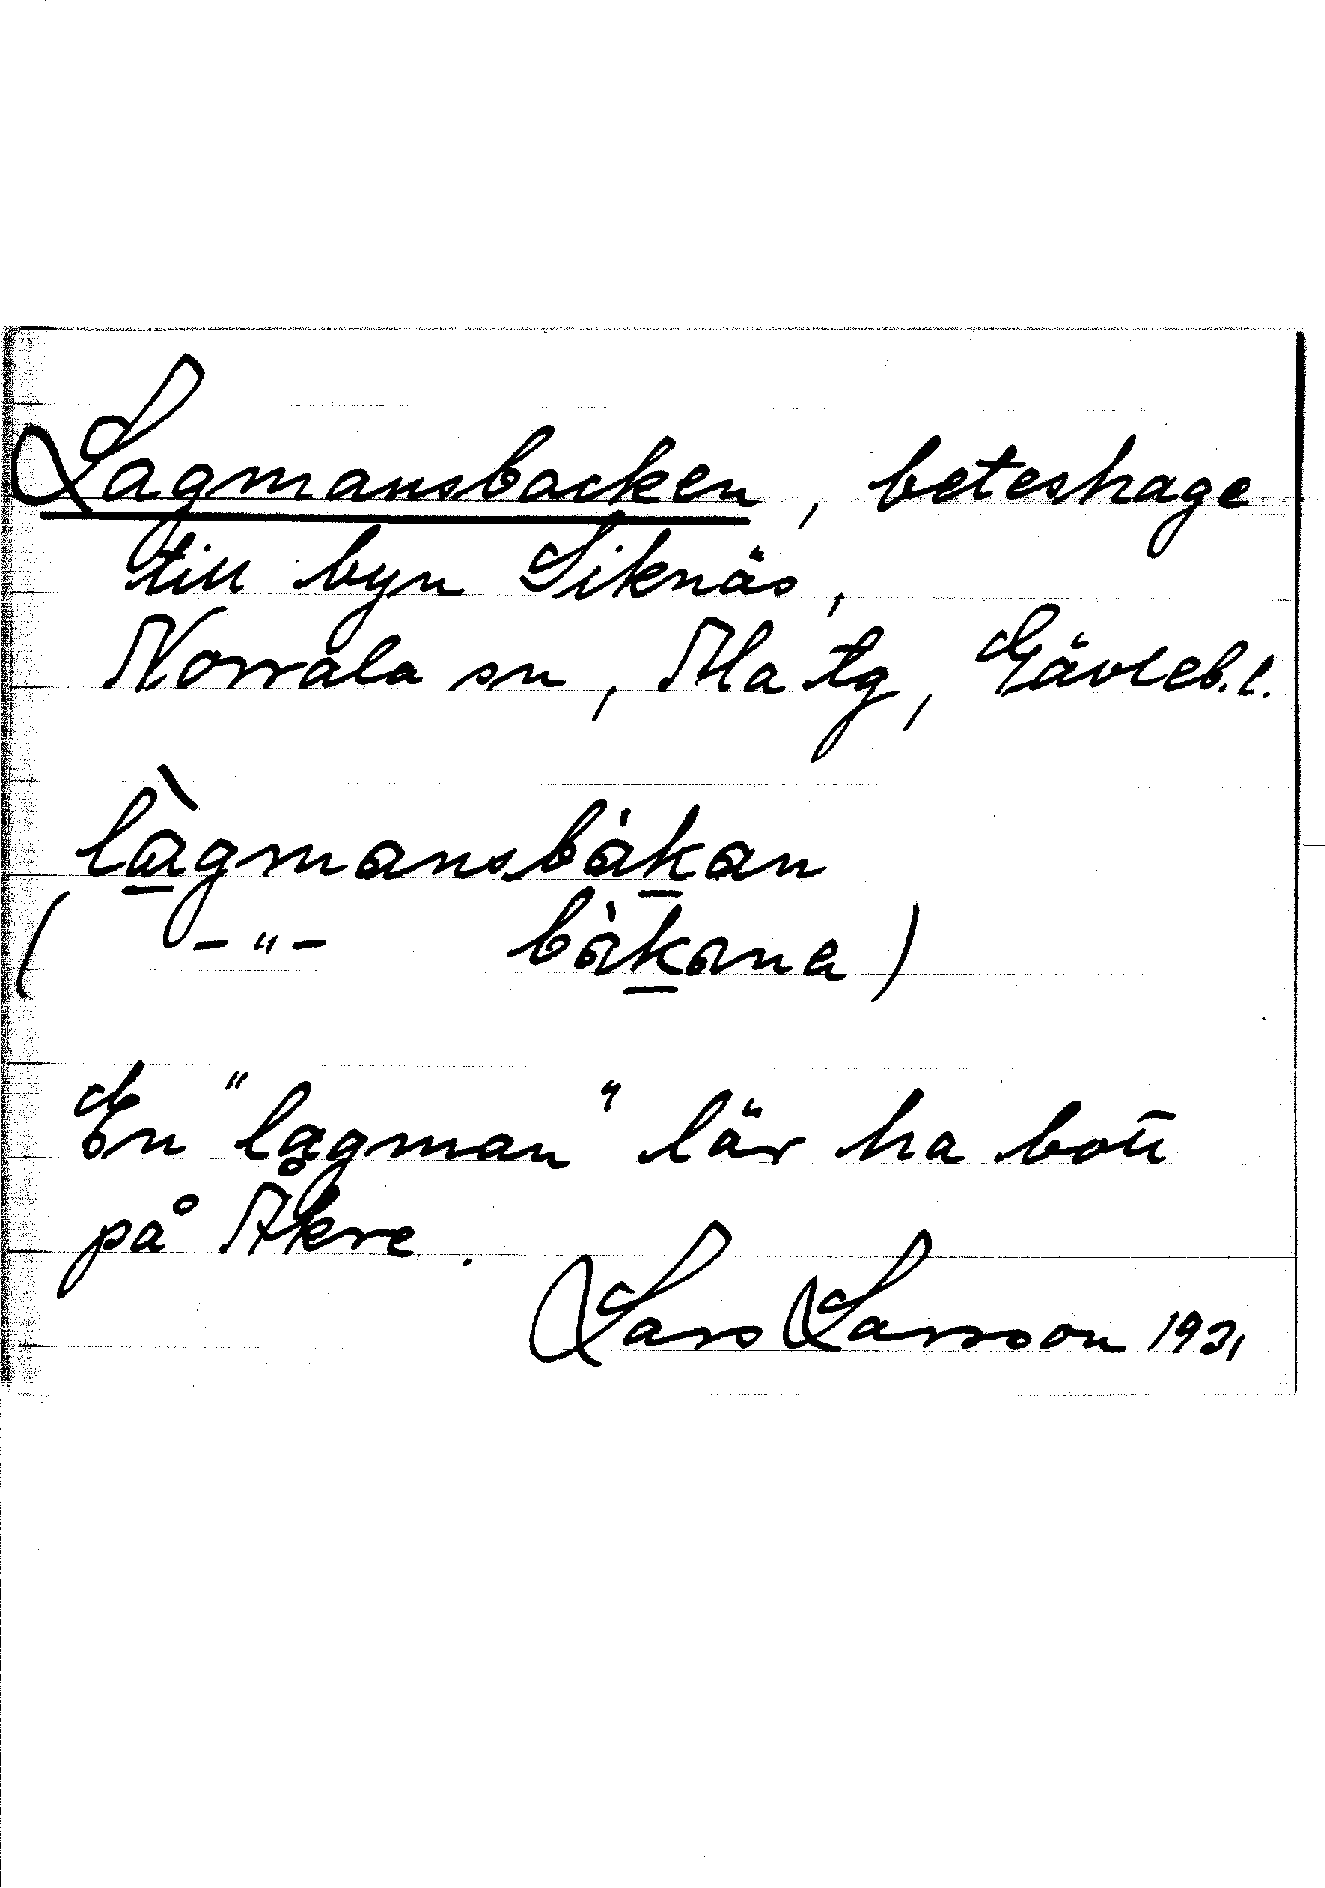 Lagmansbacken, beteshage
till byn Siknäs,
Norrala sn, Ala tg, Gävleb. l.
làgmansbàkan
( – " – bàkana )
En "lagman" lär ha bott
på Åkre.
Lars Larsson 1931